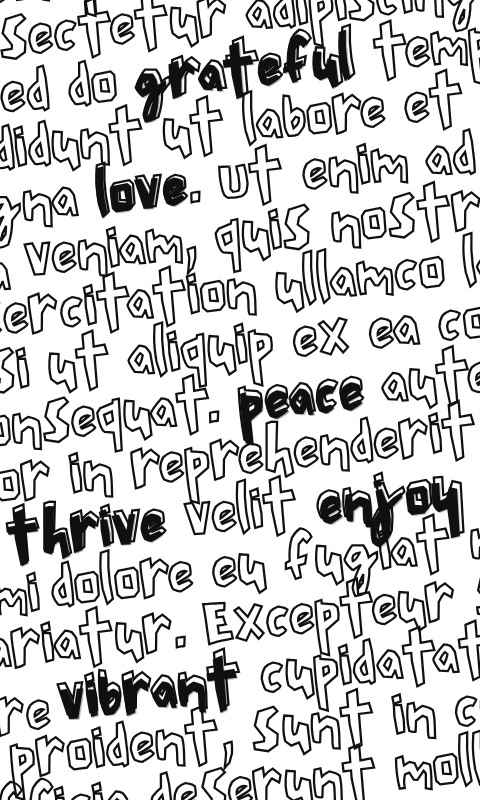 sectetur adipiscing
ed do grateful temp
didunt ut labore et
gna love. Ut enim ad
veniam, quis nostr
ercitation ullamco l
si ut aliquip ex ea co
onsequat. peace aute
or in reprehenderit
thrive velit enjoy
mi dolore eu fugiat
ariatur. Excepteur
re vibrant cupidatat
proident, sunt in c
deserunt moll